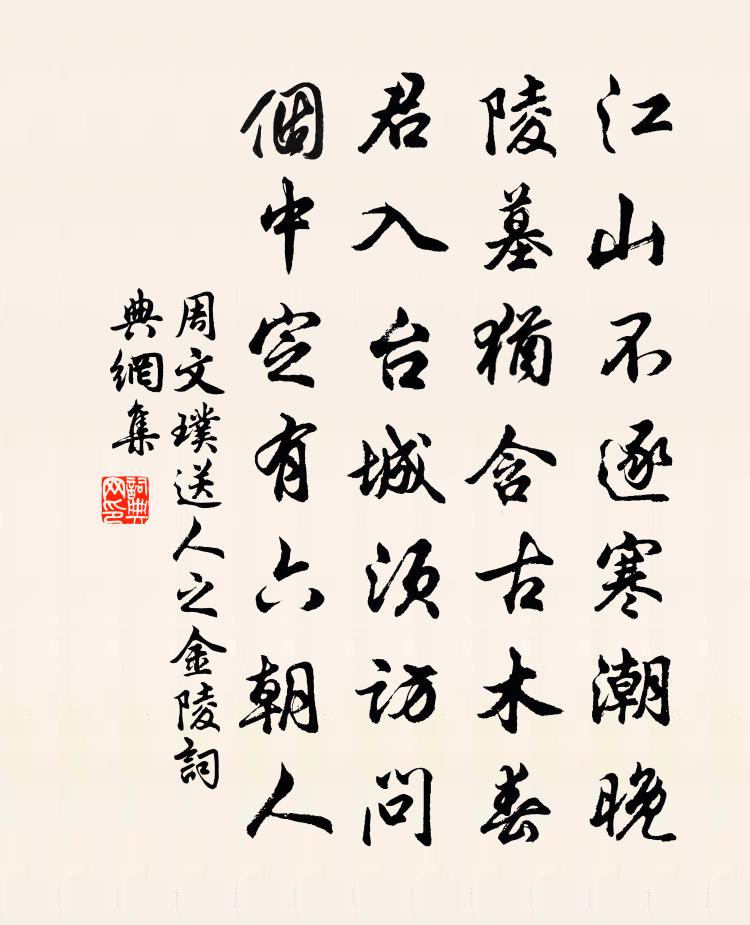 江山不逐寒潮晚
陵墓猶含古木春
君入台城須訪問
個中定有六朝人
周文璞送人之金陵詞
典網集
詞典
网印